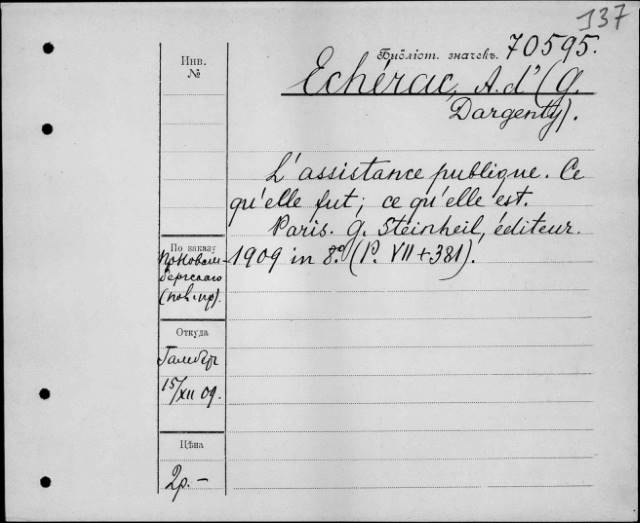 137
Библіот. значекъ. 70595.
Инв.
№
Echérac, A. d' (G.
Dargenty).
L'assistance publique. Ce
qu'elle fut; ce qu'elle est.
Paris. G. Steinheil, éditeur.
1909 in 8º. (P. VII + 381).
По заказу
(пов. пр).
Откуда
15/XII 09.
Цѣна
2р.-